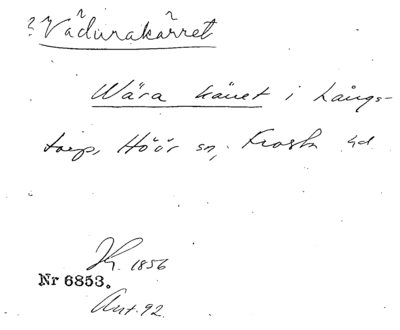 ? Vädurakärret
Wära käuet i Långs-
torp, Höör sn, Frosta hd
K. 1856
Nr 6853.
Ant. 92.